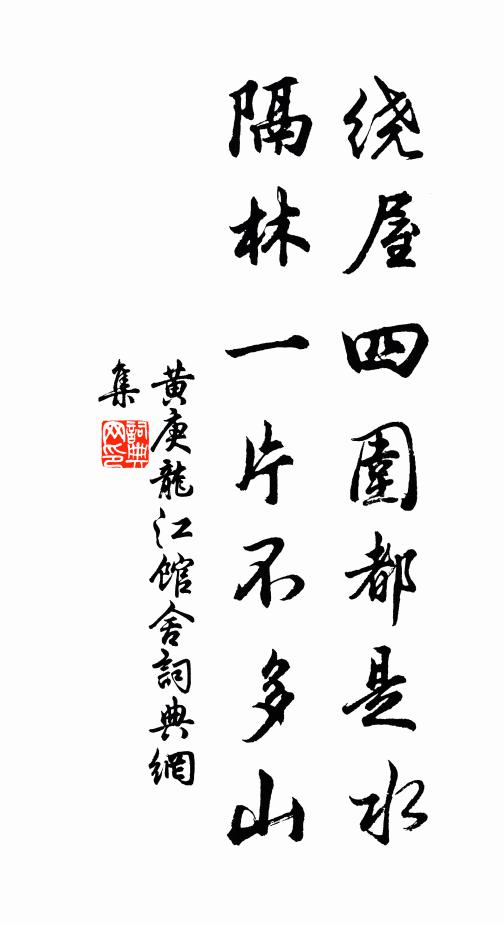 绕屋四围都是水
隔林一片不多山
黄庚龙江馆舍詞典網
集
詞典网印